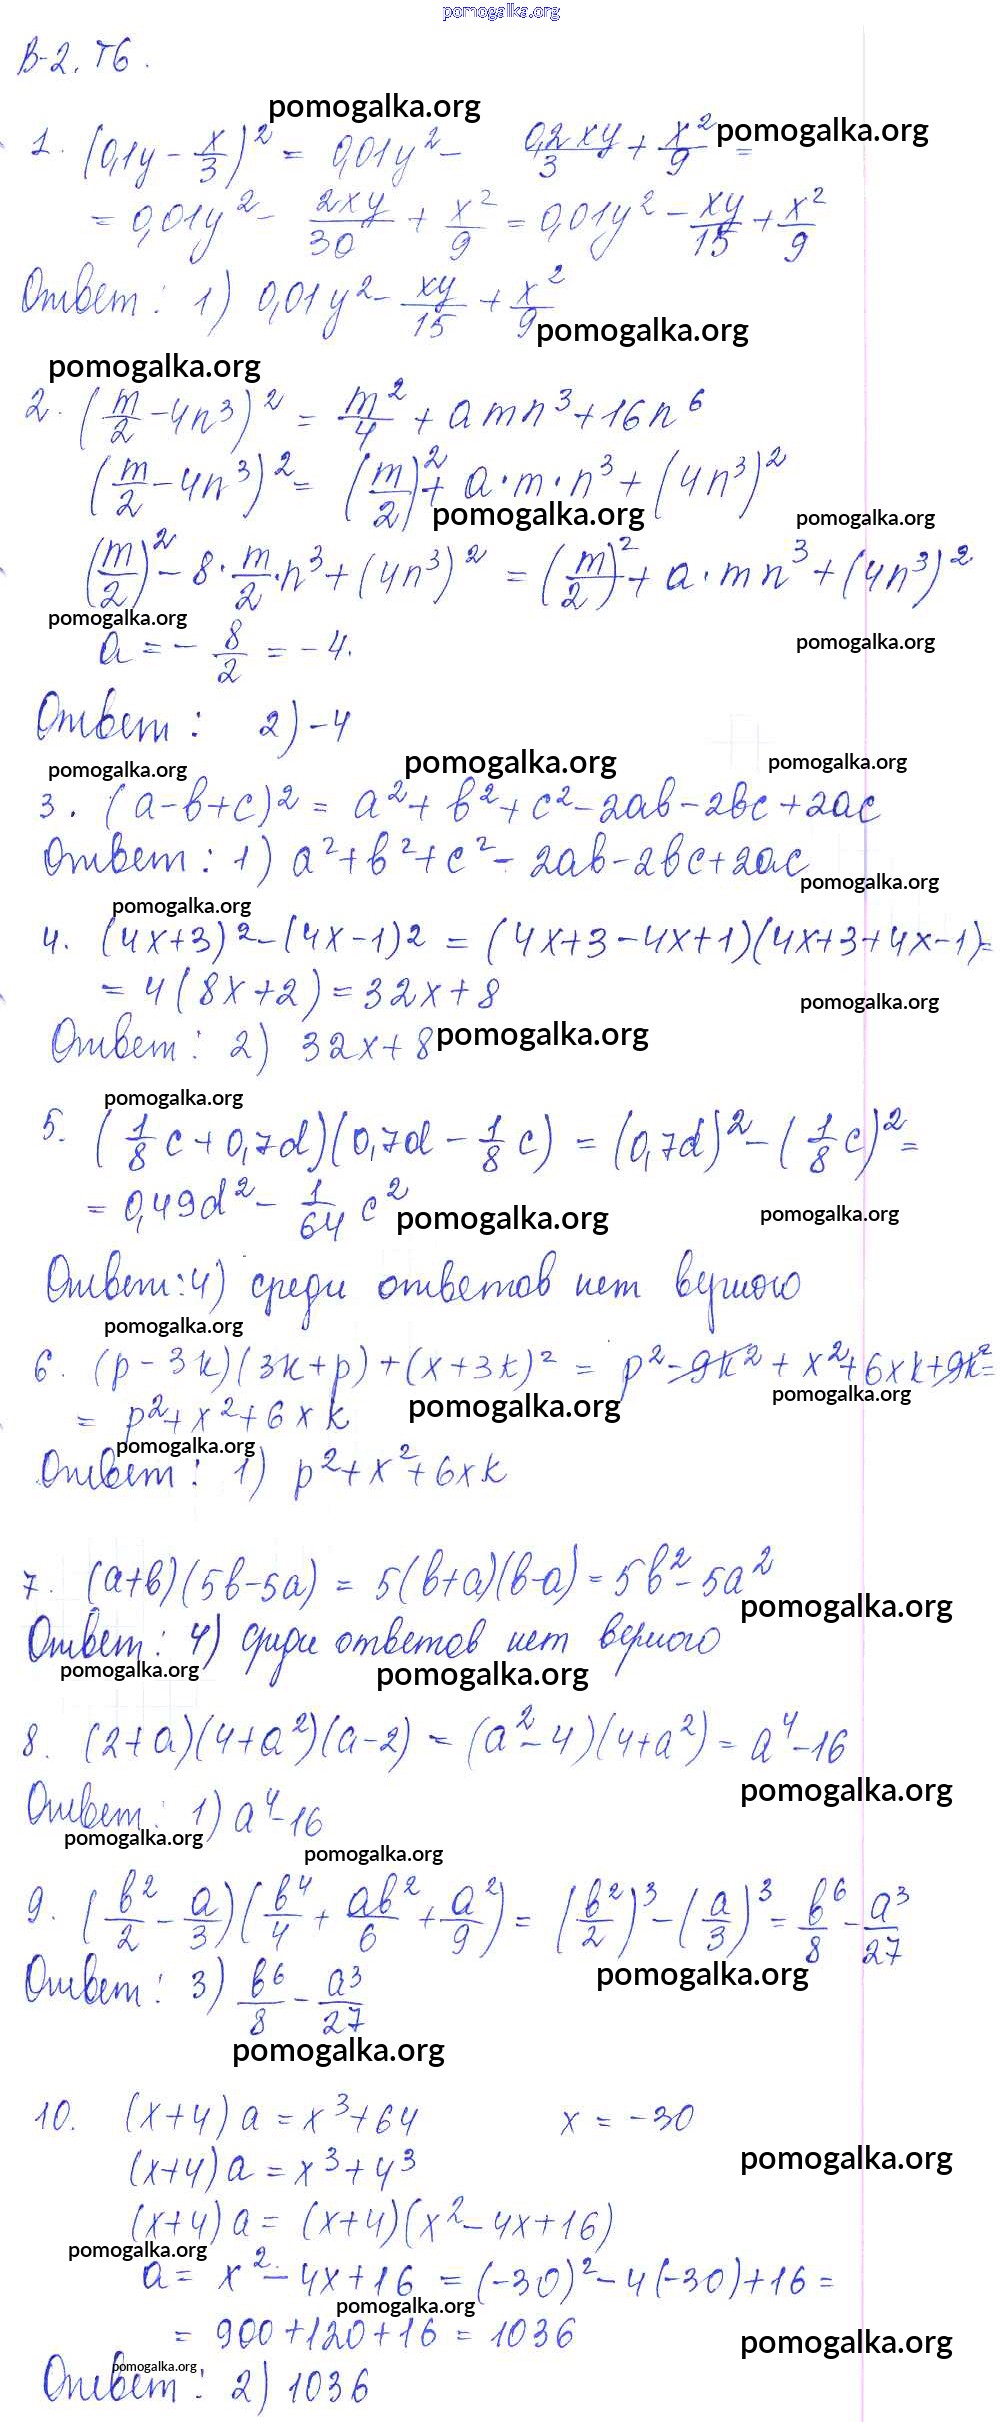 pomogalka.org
В-2. Т6.
pomogalka.org
1. (0,1y - x/3)² = 0,01y² - 0,2xy/3 + x²/9 = pomogalka.org
= 0,01y² - 2xy/30 + x²/9 = 0,01y² - xy/15 + x²/9
Ответ: 1) 0,01y² - xy/15 + x²/9
pomogalka.org
pomogalka.org
2. (m/2 - 4n³)² = m²/4 + amn³ + 16n⁶
(m/2 - 4n³)² = (m/2)² + a·m·n³ + (4n³)²
pomogalka.org pomogalka.org
(m/2)² - 8·m/2·n³ + (4n³)² = (m/2)² + a·mn³ + (4n³)²
pomogalka.org
a = - 8/2 = -4. pomogalka.org
Ответ: 2) -4
pomogalka.org pomogalka.org pomogalka.org
3. (a-b+c)² = a² + b² + c² - 2ab - 2bc + 2ac
Ответ: 1) a² + b² + c² - 2ab - 2bc + 2ac
pomogalka.org
pomogalka.org
4. (4x+3)² - (4x-1)² = (4x+3-4x+1)(4x+3+4x-1) =
= 4(8x+2) = 32x+8 pomogalka.org
Ответ: 2) 32x+8 pomogalka.org
pomogalka.org
5. (1/8 c + 0,7d)(0,7d - 1/8 c) = (0,7d)² - (1/8 c)² =
= 0,49d² - 1/64 c² pomogalka.org pomogalka.org
Ответ: 4) среди ответов нет верного
pomogalka.org
6. (p-3k)(3k+p) + (x+3k)² = p² - 9k² + x² + 6xk + 9k² =
pomogalka.org
= p² + x² + 6xk pomogalka.org
pomogalka.org
Ответ: 1) p² + x² + 6xk
7. (a+b)(5b-5a) = 5(b+a)(b-a) = 5b² - 5a²
pomogalka.org
Ответ: 4) среди ответов нет верного
pomogalka.org pomogalka.org
8. (2+a)(4+a²)(a-2) = (a²-4)(4+a²) = a⁴-16
pomogalka.org
Ответ: 1) a⁴-16
pomogalka.org
pomogalka.org
9. (b²/2 - a/3)(b⁴/4 + ab²/6 + a²/9) = (b²/2)³ - (a/3)³ = b⁶/8 - a³/27
Ответ: 3) b⁶/8 - a³/27 pomogalka.org
pomogalka.org
10. (x+4)a = x³+64 x = -30
(x+4)a = x³+4³ pomogalka.org
(x+4)a = (x+4)(x²-4x+16)
pomogalka.org
a = x² - 4x + 16 = (-30)² - 4(-30) + 16 =
pomogalka.org
= 900+120+16 = 1036 pomogalka.org
pomogalka.org
Ответ: 2) 1036